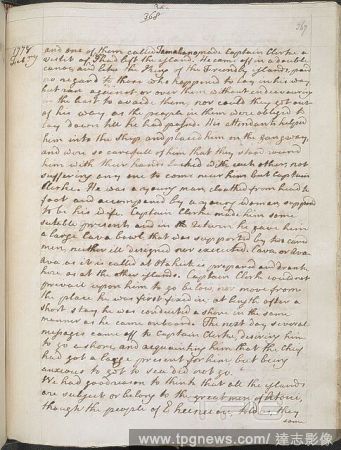 368
367
1778
Feby
and one of them called Tamahano made Captain Clerke a
visit after I had left the island. He came off in a double
canoe, and like the King of the Friendly islands, paid
no regard to those who happened to lay in his way
but ran against or over them without endeavouring
in the least to avoid them, nor could they get out
of his way as the people in them were obliged to
lay down till he had passed. His attendants helped
him into the ship and placed him on the gangway,
and were so carefull of him that they stood round
him with their hands locked in each other, not
suffering any one to come near him but Captain
Clerke. He was a young man, cloathed from head to
foot and accompanied by a young woman supposed
to be his wife. Captain Clerke made him some
suitable presents and in return he gave him
a large Cava bowl that was supported by two carved
men, neither ill designed nor executed. Cava or Ava
Ava as it is called at Otaheite is prepared and drank
here as at the other islands. Captain Clerke could not
prevail upon him to go below nor move from
the place he was first fixed in, at length after a
short stay he was conducted a shore in the same
manner as he came on board. The next day several
messages came off to Captain Clerke, desiring him
to go a shore and acquainting him that the Chief
had got a large present for him but being
anxious to get to sea did not go.
We had good reason to think that all the islands
are subject or belong to the great men of Atoui,
though the people of
they
some
www.tpgnews.com/ 達志影像